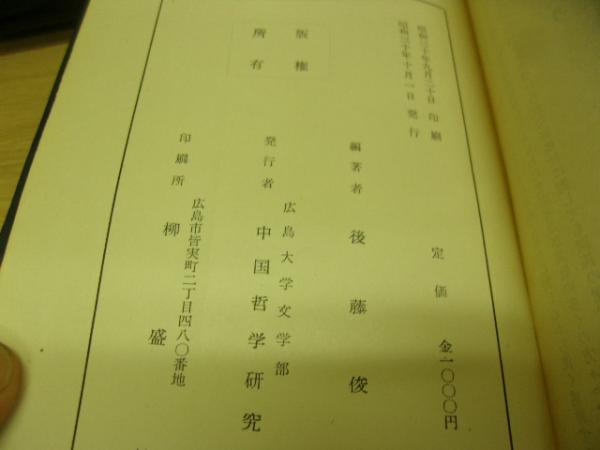 昭和三十年九月二十日 印刷
昭和三十年十月一日 発行
定価 金一〇〇〇円
編著者 後藤俊
広島大学文学部
発行者 中国哲学研究
広島市皆実町二丁目四八〇番地
印刷所 柳盛
版権
所有